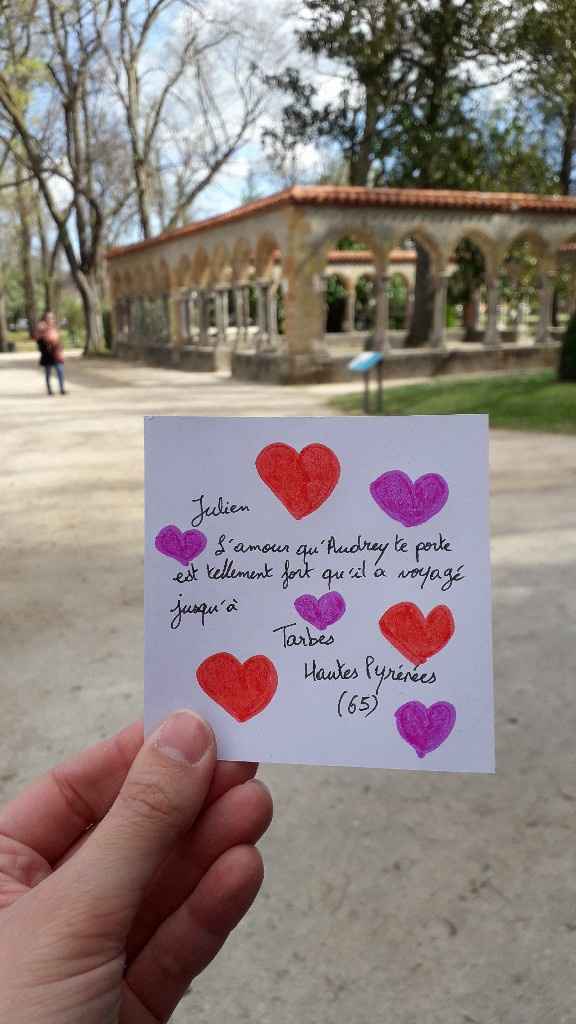 Julien
L'amour qu'Audrey te porte
est tellement fort qu'il a voyagé
jusqu'à
Tarbes
Hautes Pyrénées
(65)